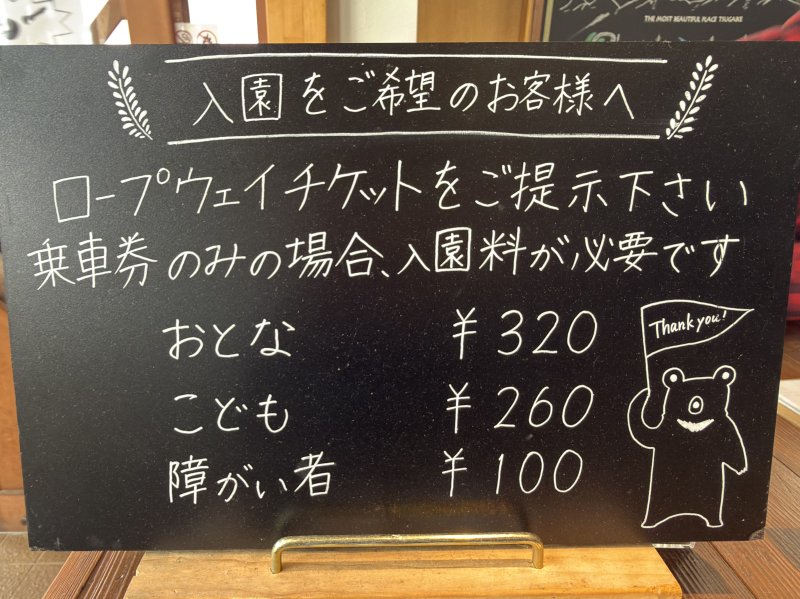 THE MOST BEAUTIFUL PLACE TSUGAIKE
入園をご希望のお客様へ
ロープウェイチケットをご提示下さい
乗車券のみの場合、入園料が必要です
おとな ¥320
こども ¥260
障がい者 ¥100
Thank you!